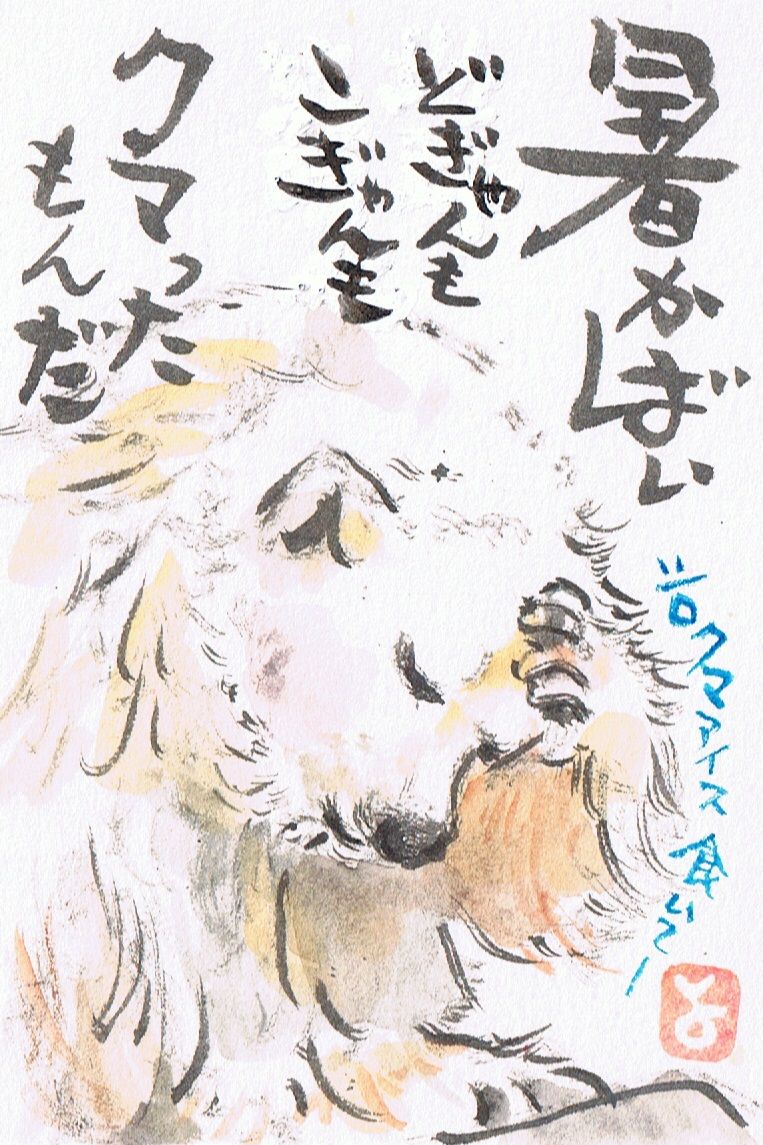 暑かばい
どぎゃんも
こぎゃんも
クマった
もんだ
白クマアイス食いてー
よ